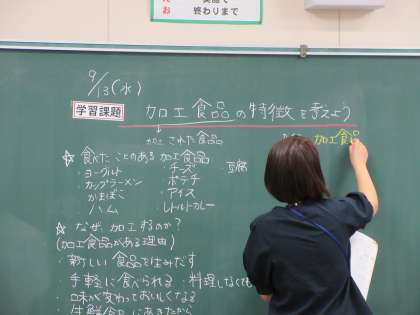 お 終わりまで
9/13(水)
学習課題 加工食品の特徴を考えよう
加工された食品
加工食品
☆食べたことのある加工食品
・ヨーグルト ・チーズ ・豆腐
・カップラーメン ・ポテチ
・かまぼこ ・アイス
・ハム ・レトルトカレー
☆なぜ加工するのか?
(加工食品がある理由)
・新しい食品を生みだす
・手軽に食べられる 料理しなくても
・味が変わっておいしくなる